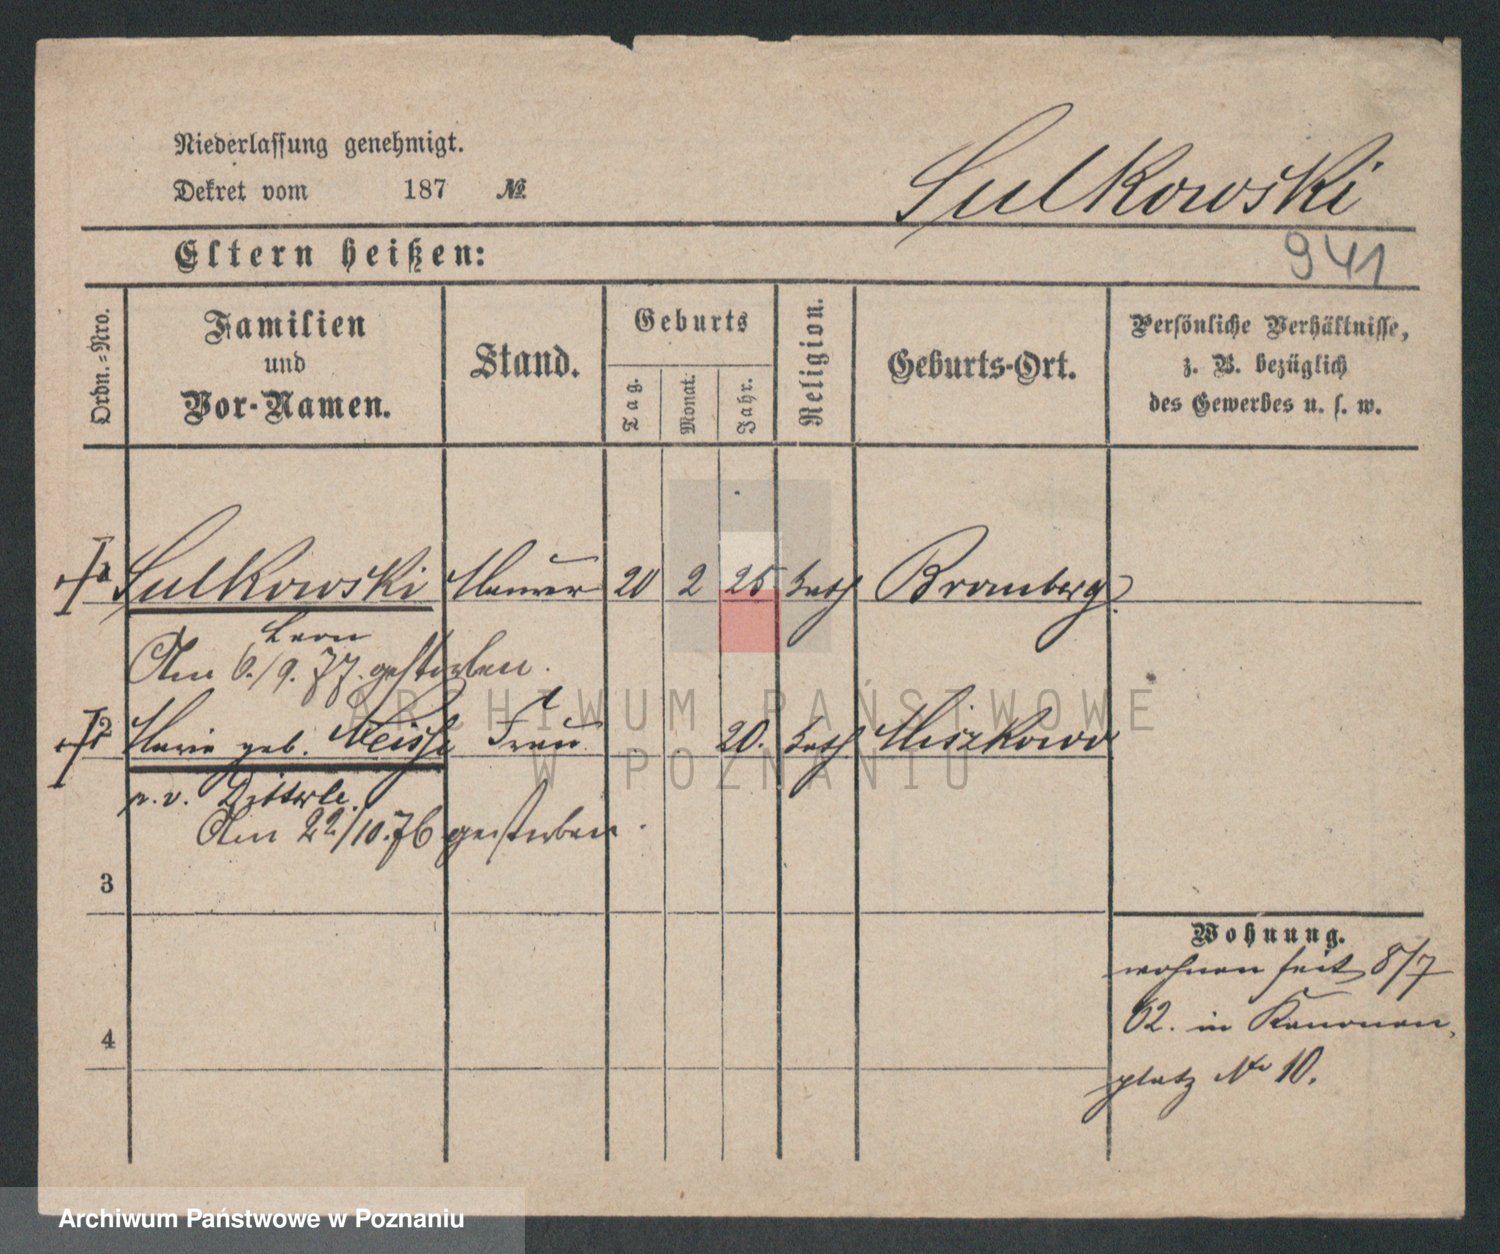 Niederlassung genehmigt.
Dekret vom 187 №
Sulkowski
Eltern heißen:
941
Ordn.-Nro.
Familien
und
Vor-Namen.
Stand.
Geburts
Tag.
Monat.
Jahr.
Religion.
Geburts-Ort.
Persönliche Verhältnisse,
z. B. bezüglich
des Gewerbes u. s. w.
1 Sulkowski Maurer 20 2 25 kath Bromberg
Leon
Am 6./9. 77. gestorben.
2 Marie geb. Frau 20. kath Miszkowo
Am 22/10.76 gestorben.
3
4
Wohnung.
wohnen seit 8/7
62. in Kanonen-
platz No 10.
ARCHIWUM PAŃSTWOWE
W POZNANIU
Archiwum Państwowe w Poznaniu